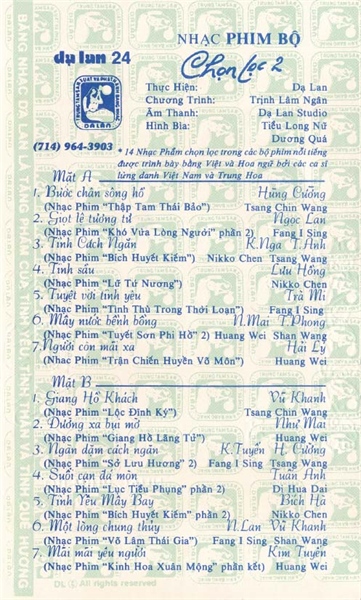 NHẠC PHIM BỘ
dạ lan 24
Chọn Lọc 2
TRUNG TÂM SẢN XUẤT VÀ PHÁT HÀNH BĂNG NHẠC
DẠ LAN
(714) 964-3903
Thực Hiện: Dạ Lan
Chương Trình: Trịnh Lâm Ngân
Âm Thanh: Dạ Lan Studio
Hình Bìa: Tiểu Long Nữ
Dương Quá
* 14 Nhạc Phẩm chọn lọc trong các bộ phim nổi tiếng
được trình bày bằng Việt và Hoa ngữ bởi các ca sĩ
lừng danh Việt Nam và Trung Hoa
Mặt A
1. Bước chân sông hồ Hùng Cường
(Nhạc Phim "Thập Tam Thái Bảo") Tsang Chin Wang
2. Giọt lệ tương tư Ngọc Lan
(Nhạc Phim "Khó Vừa Lòng Người" phần 2) Fang I Sing
3. Tình Cách Ngăn K.Nga T.Anh
(Nhạc Phim "Bích Huyết Kiếm") Nikko Chen Tsang Wang
4. Tình sầu Lưu Hồng
(Nhạc Phim "Lữ Tứ Nương") Nikko Chen
5. Tuyệt vời tình yêu Trà Mi
(Nhạc Phim "Tình Thù Trong Thới Loạn") Fang I Sing
6. Mây nước bềnh bồng N.Mai T.Phong
(Nhạc Phim "Tuyết Sơn Phi Hồ" 2) Huang Wei Shan Wang
7. Người còn mãi xa Hải Lý
(Nhạc Phim "Trận Chiến Huyền Võ Môn") Huang Wei
Mặt B
1. Giang Hồ Khách Vũ Khanh
(Nhạc Phim "Lộc Đỉnh Ký") Tsang Chin Wang
2. Đường xa bụi mờ Như Mai
(Nhạc Phim "Giang Hồ Lãng Tử") Huang Wei
3. Ngàn dặm cách ngăn K.Tuyền H.Cường
(Nhạc Phim "Sở Lưu Hương" 2) Fang I Sing Tsang Wang
4. Suối cạn đá mòn Tuấn Anh
(Nhạc Phim "Lục Tiểu Phụng" phần 2) Di Hua Dai
5. Tình Yêu Mây Bay Bích Hà
(Nhạc Phim "Bích Huyết Kiếm" phần 2) Nikko Chen
6. Một lòng chung thủy N.Lan Vũ Khanh
(Nhạc Phim "Võ Lâm Thái Gia") Fang I Sing Shan Wang
7. Mãi mãi yêu người Kim Tuyến
(Nhạc Phim "Kinh Hoa Xuân Mộng" phần kết) Huang Wei
DL Ⓘ All rights reserved